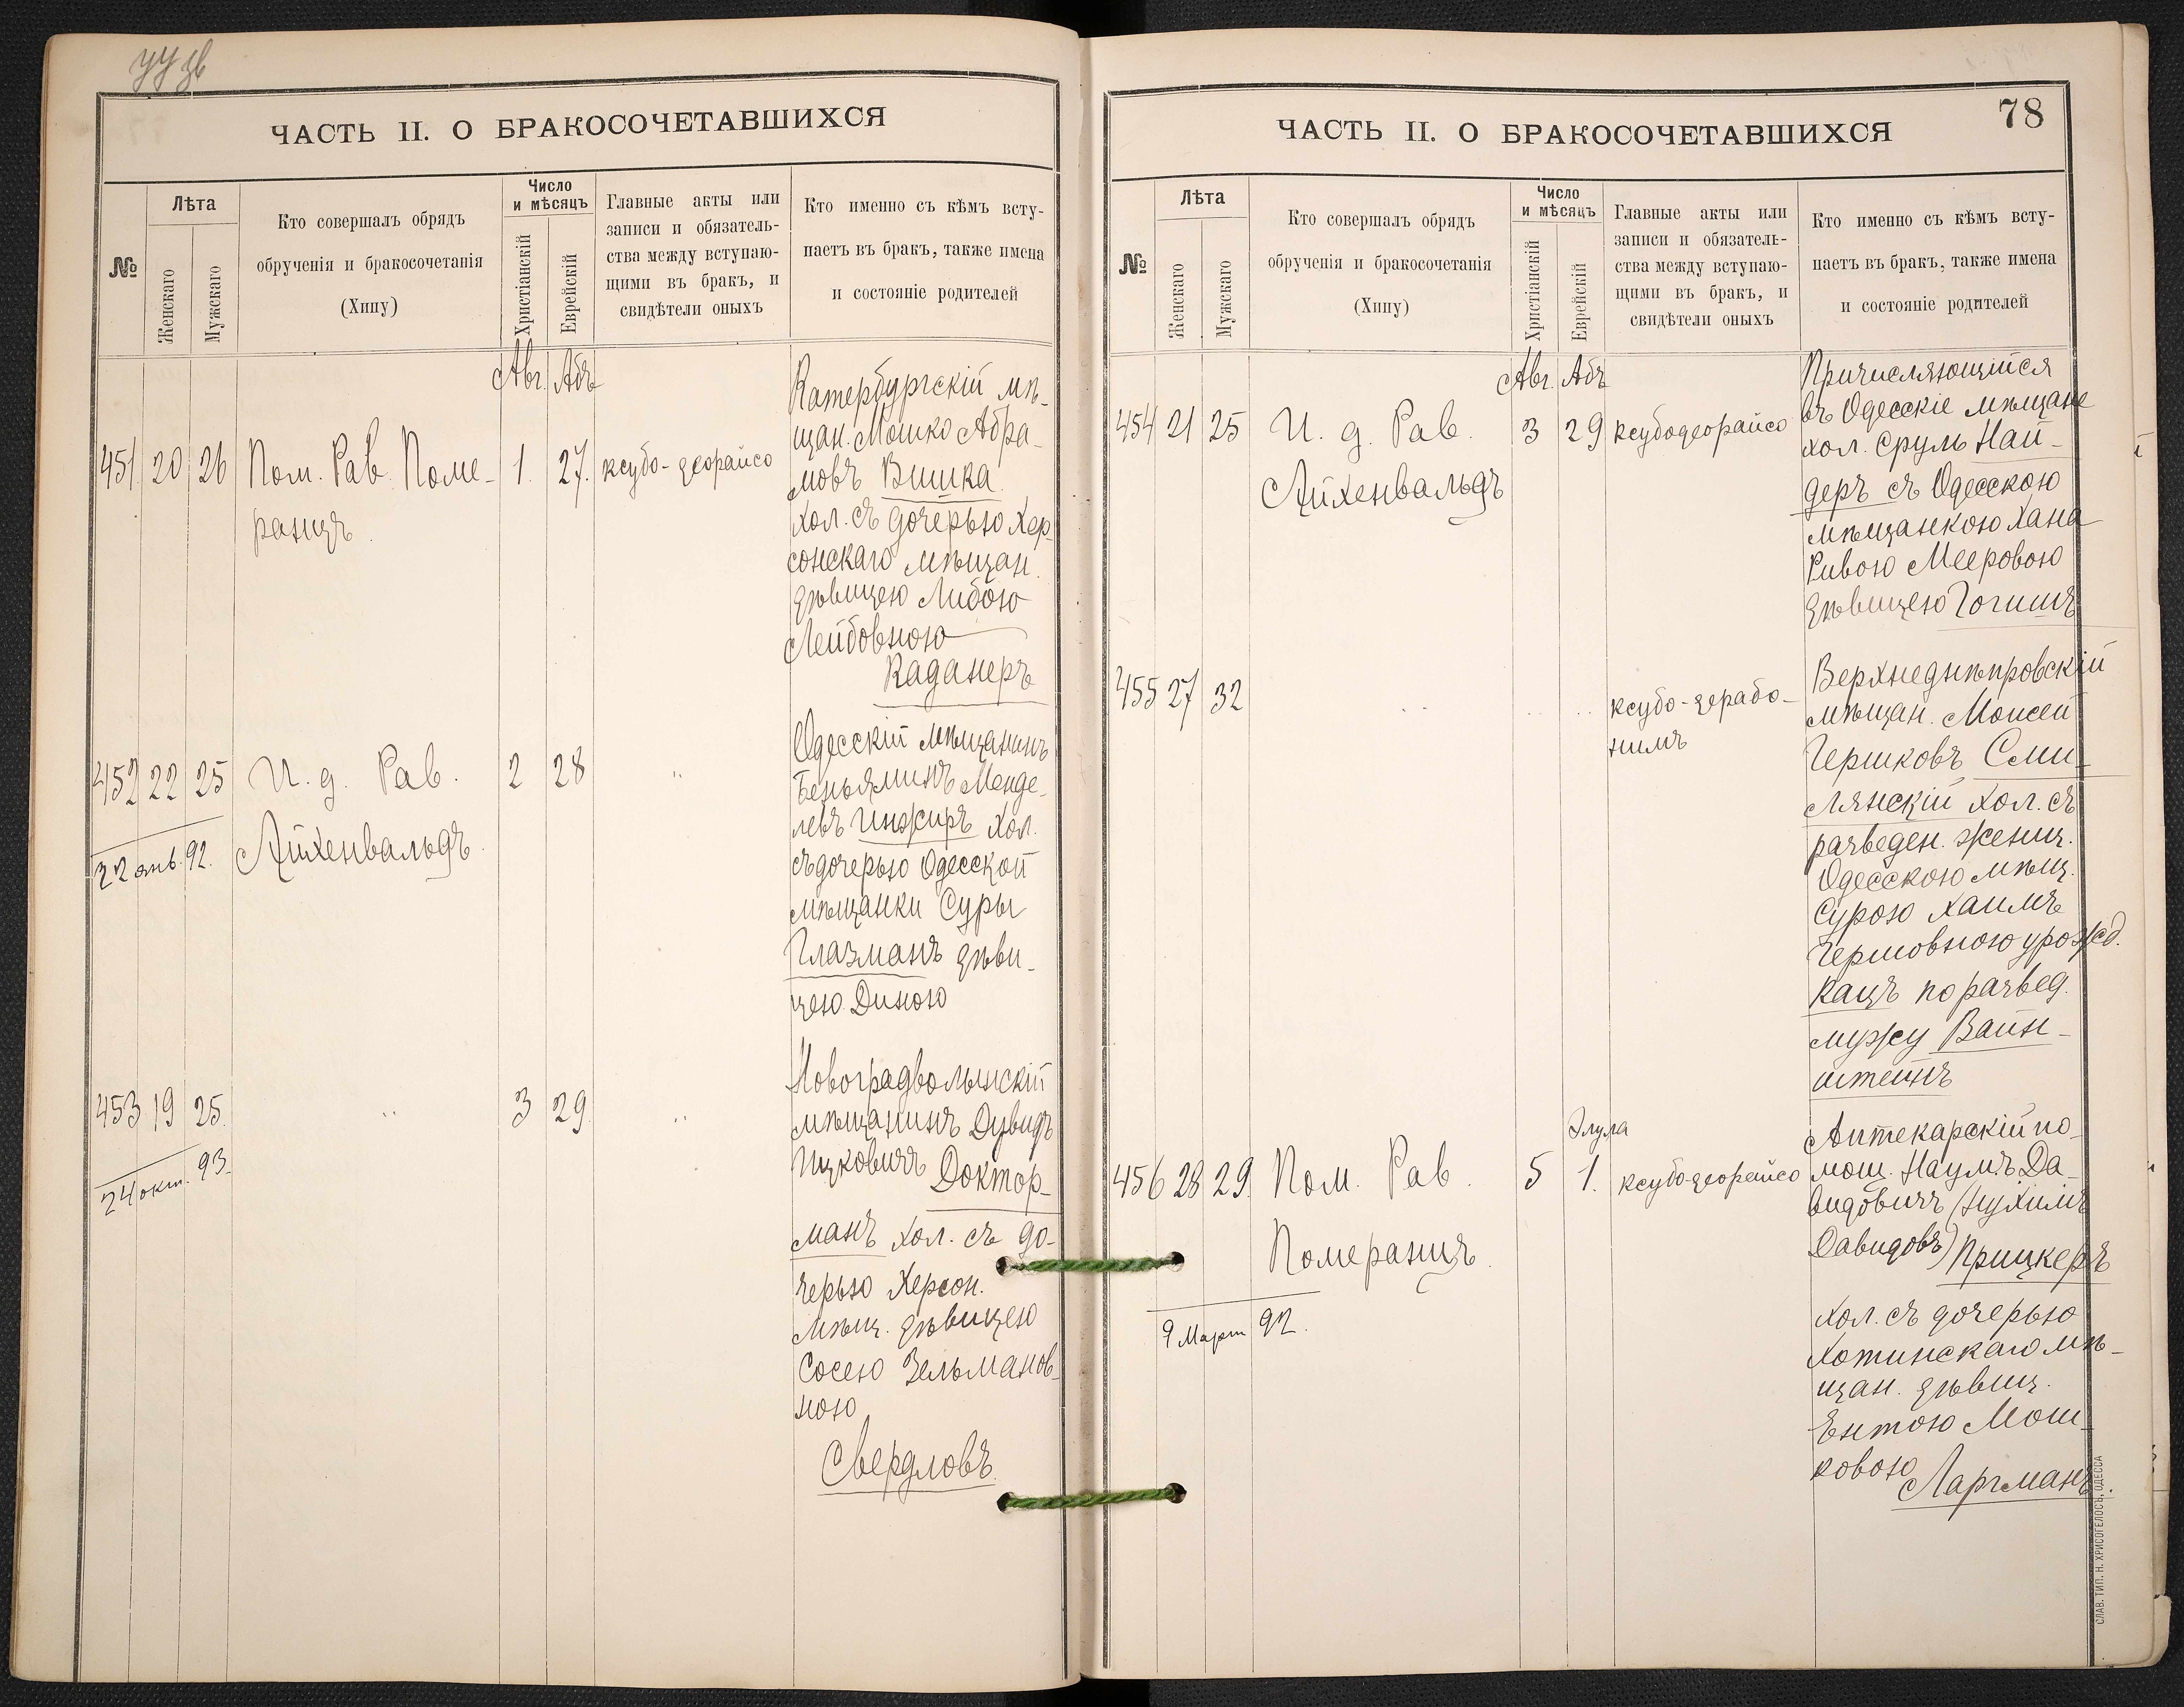 ЧАСТЬ II. О БРАКОСОЧЕТАВШИХСЯ
№
Лѣта
Женскаго
Мужскаго
Кто совершалъ обрядъ
обрученія и бракосочетанія
(Хипу)
Число
и мѣсяцъ
Христіанскій
Еврейскій
Главные акты или
записи и обязатель-
ства между вступаю-
щими въ бракъ, и
свидѣтели оныхъ
Кто именно съ кѣмъ всту-
паетъ въ бракъ, также имена
и состояніе родителей
Авг. Абъ
451 20 26 Пом. Рав. Поме-
ранцъ.
1. 27. ксубо-деорайсо
Катербургскій мѣ-
щан. Мошко Абра-
мовъ Вишка
хол. съ дочерью Хер
сонскаго мѣщан.
дѣвицею Либою
Лейбовною
Каданеръ
452 22 25 И. д. Рав.
Айхенвальдъ.
22 янв. 92.
2 28 "
Одесскій мѣщанинъ
Беньяминъ Менде-
левъ Инжиръ хол.
съ дочерью Одесской
мѣщанки Суры
Глазманъ дѣви-
цею Диною
453 19 25. " 3 29. "
24 окт. 93.
Новоградволынскій
мѣщанинъ Дувидъ
Ицковичъ Доктор-
манъ хол. съ до-
черью Херсон.
мѣщ. дѣвицею
Сосею Зельманов-
ною
Свердловъ
78
ЧАСТЬ II. О БРАКОСОЧЕТАВШИХСЯ
№
Лѣта
Женскаго
Мужскаго
Кто совершалъ обрядъ
обрученія и бракосочетанія
(Хипу)
Число
и мѣсяцъ
Христіанскій
Еврейскій
Главные акты или
записи и обязатель-
ства между вступаю-
щими въ бракъ, и
свидѣтели оныхъ
Кто именно съ кѣмъ всту-
паетъ въ бракъ, также имена
и состояніе родителей
Авг. Абъ
454 21 25 И. д. Рав.
Айхенвальдъ
3 29 ксубодеорайсо
Причисляющійся
въ Одесскіе мѣщане
хол. Сруль Най-
деръ съ Одесскою
мѣщанкою Хана
Ривою Мееровою
дѣвицею Гогишъ
455 27 32 " " "
ксубо-дерабо-
нимъ
Верхнеднѣпровскій
мѣщан. Моисей
Гершковъ Сми-
лянскій хол. съ
разведен. женщ.
Одесскою мѣщ.
Сурою Хаимъ
Гершовною урожд.
Кацъ по развед.
мужу Вайн-
штейнъ
Элула
456 28 29. Пом. Рав.
Померанцъ.
5 1. ксубо-деорайсо
9 Март 92.
Аптекарскій по-
мощ. Наумъ Да-
видовичъ (Нухимъ
Давидовъ) Прицкеръ
хол. съ дочерью
Хотинскаго мѣ-
щан. дѣвиц.
Ентою Мош-
ковою
Ларгманъ.
СЛАВ. ТИП. Н. ХРИСОГЕЛОСЪ, ОДЕССА